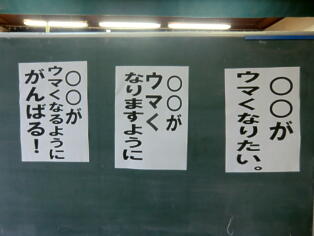 〇〇が
ウマくなりたい。
〇〇が
ウマく
なりますように
〇〇が
ウマくなるように
がんばる！